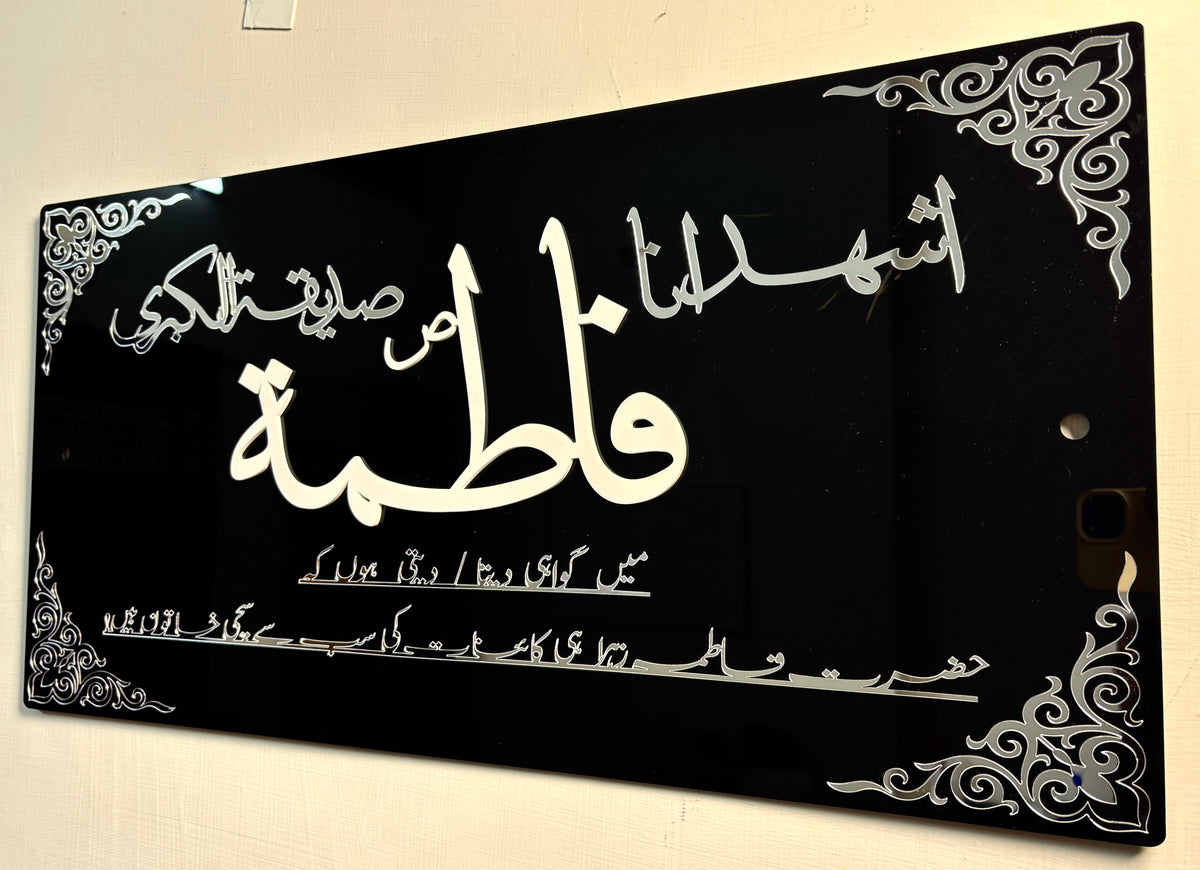 اشھد انا فاطمة ص صدیقة الکبری
میں گواہی دیتا / دیتی ہوں کہ
حضرت فاطمہ زہرا ہی کائنات کی سب سے سچی خاتون ہیں